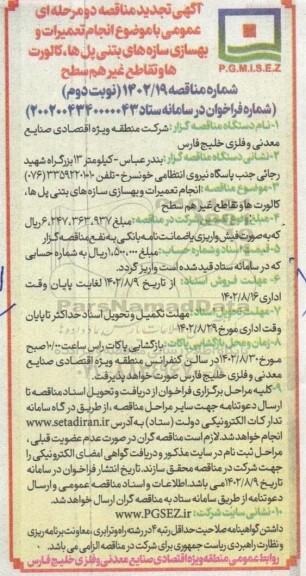 آگهی تجدید مناقصه دو مرحله ای
عمومی با موضوع انجام تعمیرات و
بهسازی سازه های بتنی پل ها، کالورت
ها و تقاطع غیر هم سطح
P.G.M.I.S.E.Z
شماره مناقصه ۱۴۰۲/۱۹ (نوبت دوم)
(شماره فراخوان در سامانه ستاد ۲۰۰۲۰۰۴۳۴۰۰۰۰۰۴۳)
۱-نام دستگاه مناقصه گزار: شرکت منطقه ویژه اقتصادی صنایع
معدنی و فلزی خلیج فارس
۲-نشانی دستگاه مناقصه گزار: بندر عباس - کیلومتر ۱۳ بزرگراه شهید
رجائی جنب پاسگاه نیروی انتظامی خونسرخ - تلفن ۳۳۵۹۲۲۰۱۰ (۰۷۶)
۳-موضوع مناقصه: انجام تعمیرات و بهسازی سازه های بتنی پل ها،
کالورت ها و تقاطع غیر هم سطح
۴-مبلغ تضمین شرکت در مناقصه: مبلغ ۶,۲۴۷,۳۶۳,۹۳۷ ریال
که به صورت فیش واریزی یا ضمانت نامه بانکی به نفع مناقصه گزار
۵-قیمت اسناد و شماره حساب: مبلغ ۱,۵۰۰,۰۰۰ ریال به شماره حسابی
که در سامانه ستاد قید شده است واریز گردد.
۶- مهلت فروش اسناد: از تاریخ ۱۴۰۲/۸/۹ لغایت پایان وقت
اداری ۱۴۰۲/۸/۱۶
۷-مهلت تحویل اسناد: مهلت تکمیل و تحویل اسناد حداکثر تا پایان
وقت اداری مورخ ۱۴۰۲/۸/۲۹
۸-زمان و محل بازگشایی پاکات: بازگشایی پاکات راس ساعت ۱۰/۰۰ صبح
مورخ ۱۴۰۲/۸/۳۰ در سالن کنفرانس منطقه ویژه اقتصادی صنایع
معدنی و فلزی خلیج فارس صورت خواهد پذیرفت.
۹-کلیه مراحل برگزاری فراخوان از دریافت و تحویل اسناد مناقصه تا
ارسال دعوتنامه جهت سایر مراحل مناقصه، از طریق درگاه سامانه
تدارکات الکترونیکی دولت (ستاد) به آدرس www.setadiran.ir
انجام خواهد شد. لازم است مناقصه گران در صورت عدم عضویت قبلی،
مراحل ثبت نام در سایت مذکور و دریافت گواهی امضای الکترونیکی را
جهت شرکت در مناقصه محقق سازند. تاریخ انتشار فراخوان در سامانه
تاریخ ۱۴۰۲/۸/۹ می باشد. اطلاعات و اسناد مناقصه عمومی و ارسال
دعوتنامه از طریق سامانه ستاد به مناقصه گران ارسال خواهد شد.
۱۰-نشانی سایت شرکت: www.PGSEZ.ir
داشتن گواهینامه صلاحیت حداقل رتبه ۴ در رشته راه و ترابری، معاونت برنامه ریزی
و نظارت راهبردی ریاست جمهوری برای شرکت در مناقصه الزامی می باشد.
روابط عمومی منطقه ویژه اقتصادی صنایع معدنی و فلزی خلیج فارس